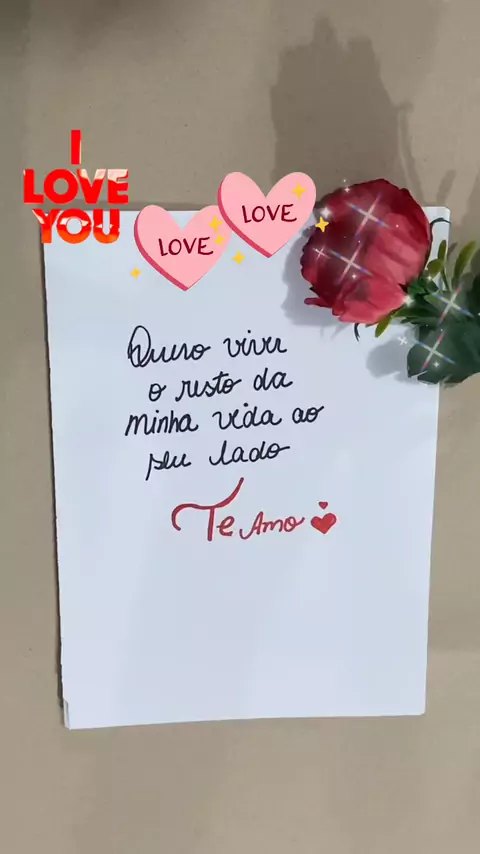 I
LOVE
YOU
LOVE
LOVE
Quero viver
o resto da
minha vida ao
seu lado
Te Amo